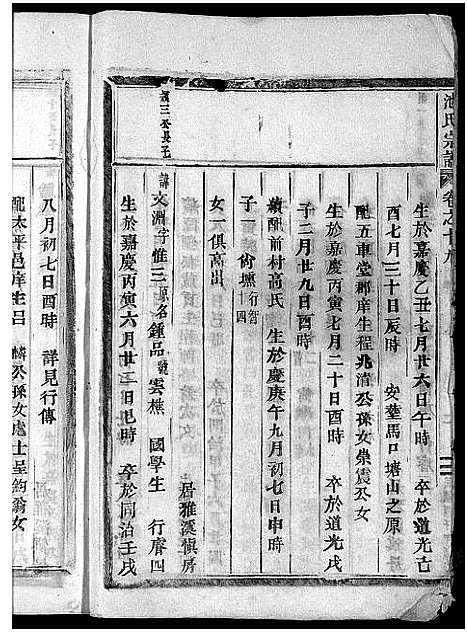 池氏宗譜
卷之十
生於嘉慶乙丑七月廿六日午時 卒於道光己
酉七月三十日辰時 安葬馬口塘山之原
配五車堂郡庠生程兆清公孫女崇震公女
生於嘉慶丙寅七月二十日酉時 卒於道光戌
子二月廿九日酉時
續配前村高氏 生於嘉慶庚午九月初七日申時
子 尚壎行智十四
女一俱高出
居雅溪慎房
三公長子
諱文淵字惟三原名鍾品號雲樵 國學生 行膺四
生於嘉慶丙寅六月廿二日巳時 卒於同治壬戌
八月初七日酉時 詳見行傳
配太平邑庠生呂 麟公孫女處士呈鈞翁女